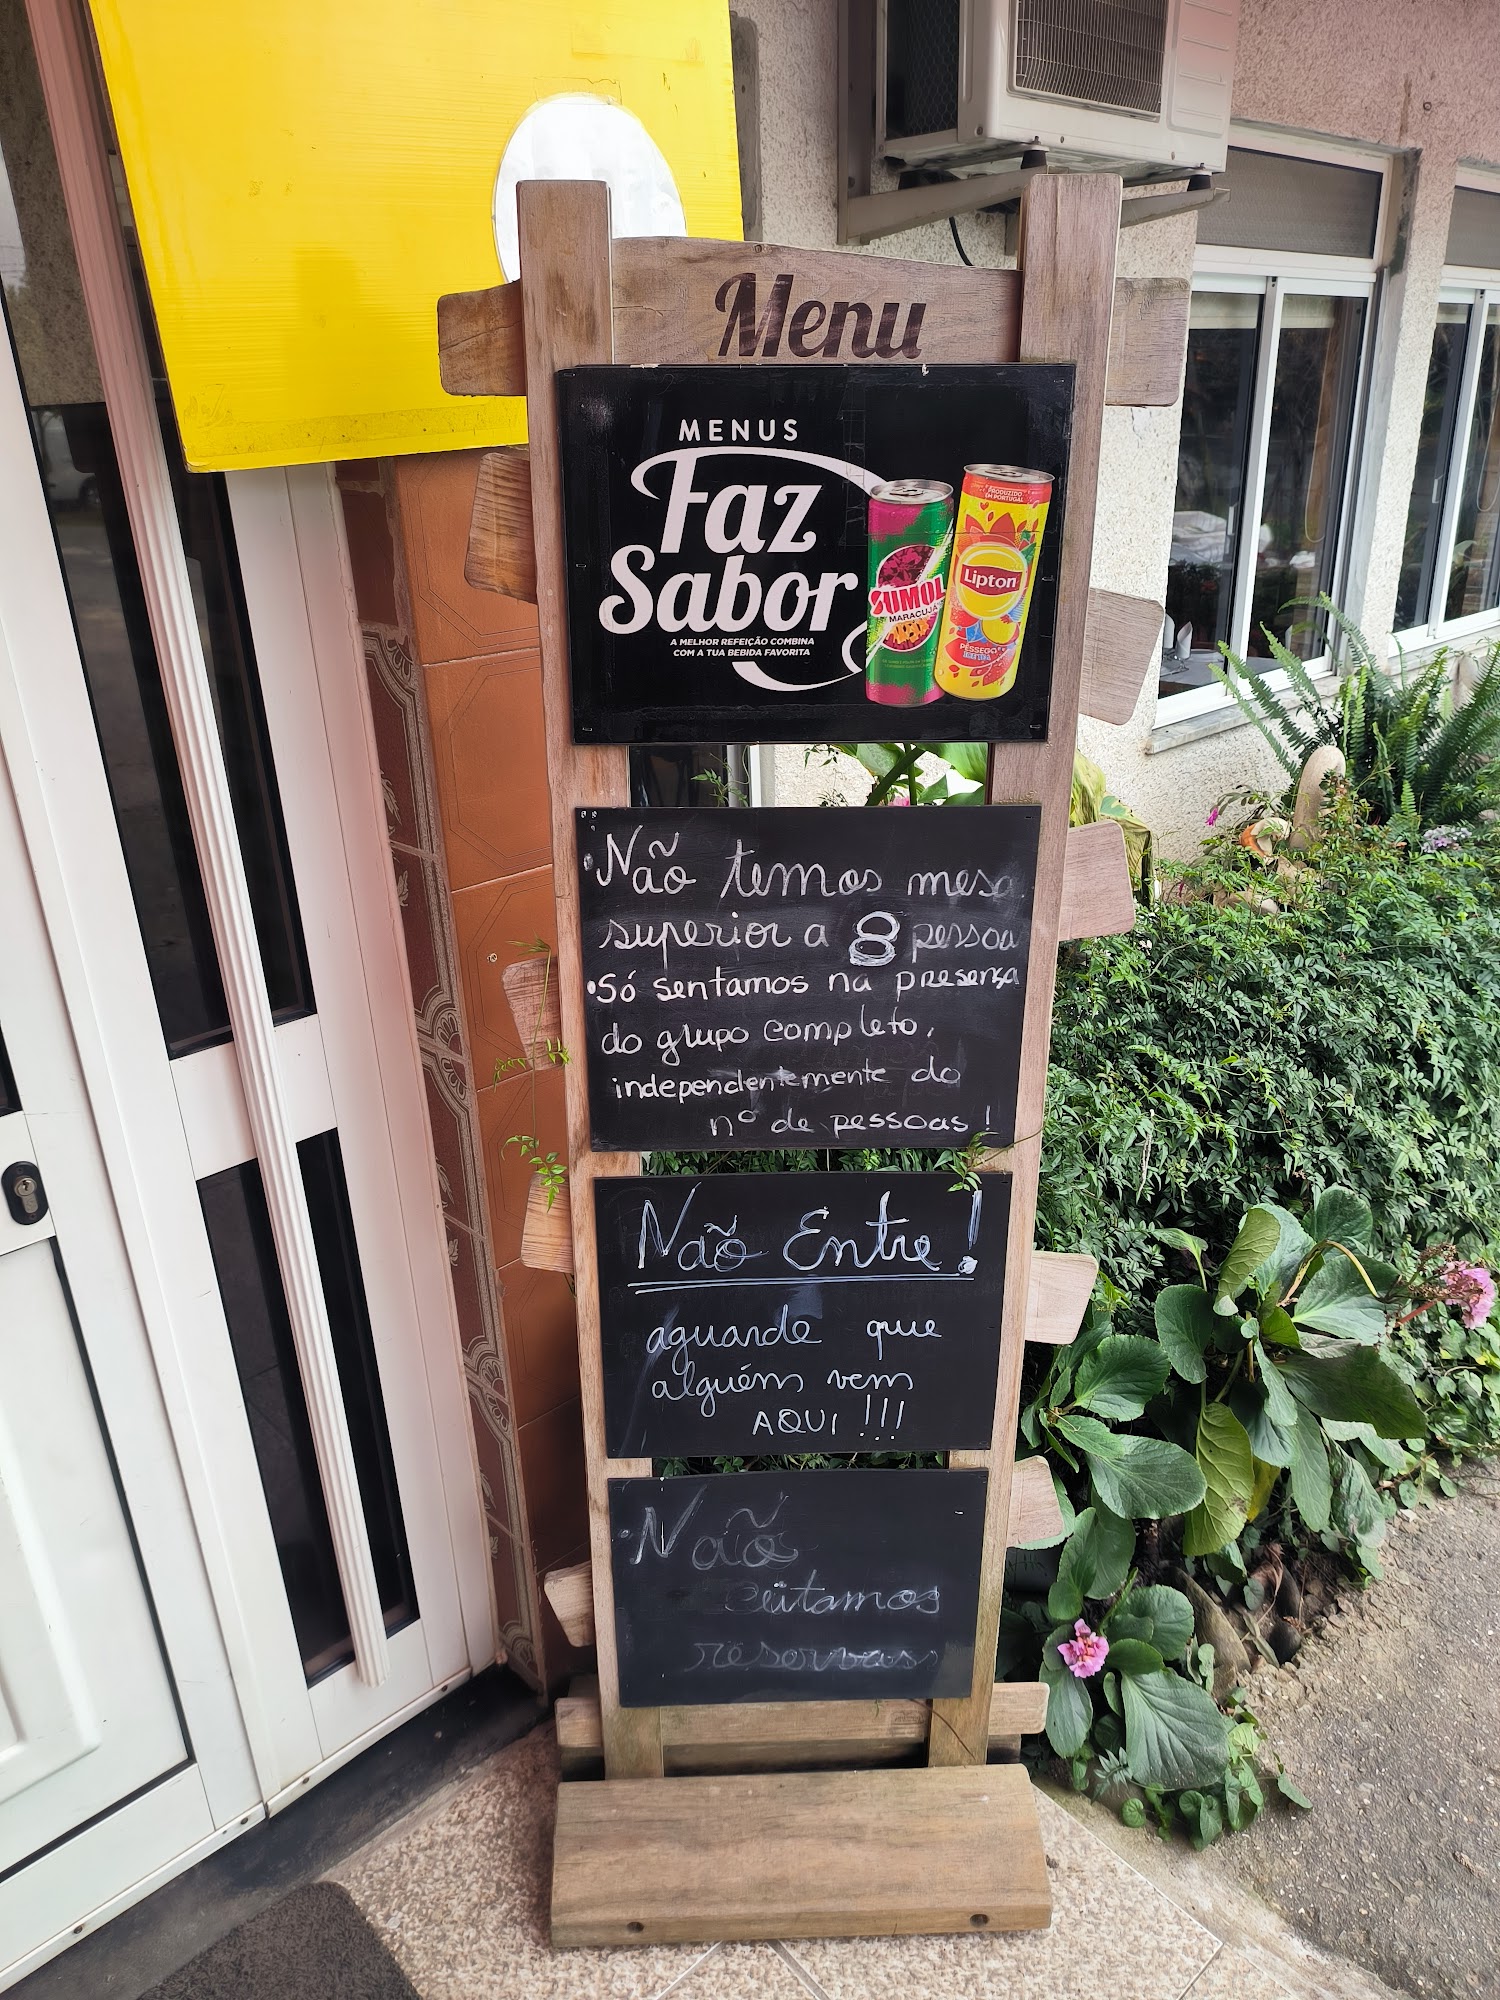 Menu
MENUS
Faz
Sabor
A MELHOR REFEIÇÃO COMBINA
COM A TUA BEBIDA FAVORITA
SUMOL
MARACUJÁ
PRODUZIDO
EM PORTUGAL
Lipton
PÊSSEGO
• Não temos mesa
superior a 8 pessoa
• Só sentamos na presença
do grupo completo,
independentemente do
nº de pessoas !
Não Entre!
aguarde que
alguém vem
AQUI !!!
• Não
ceitamos
reservas